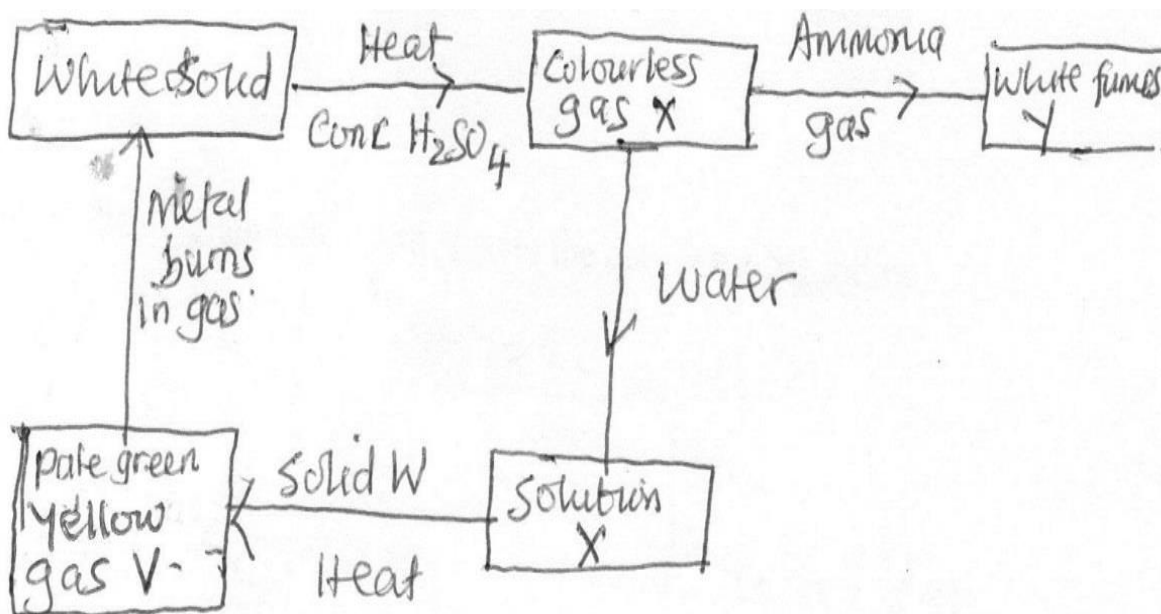 White Solid
Heat
Conc H₂SO₄
Colourless
gas X
Ammonia
gas
White fumes
Y
Metal
burns
in gas
Water
pale green
yellow
gas V
Solid W
Heat
Solution
X